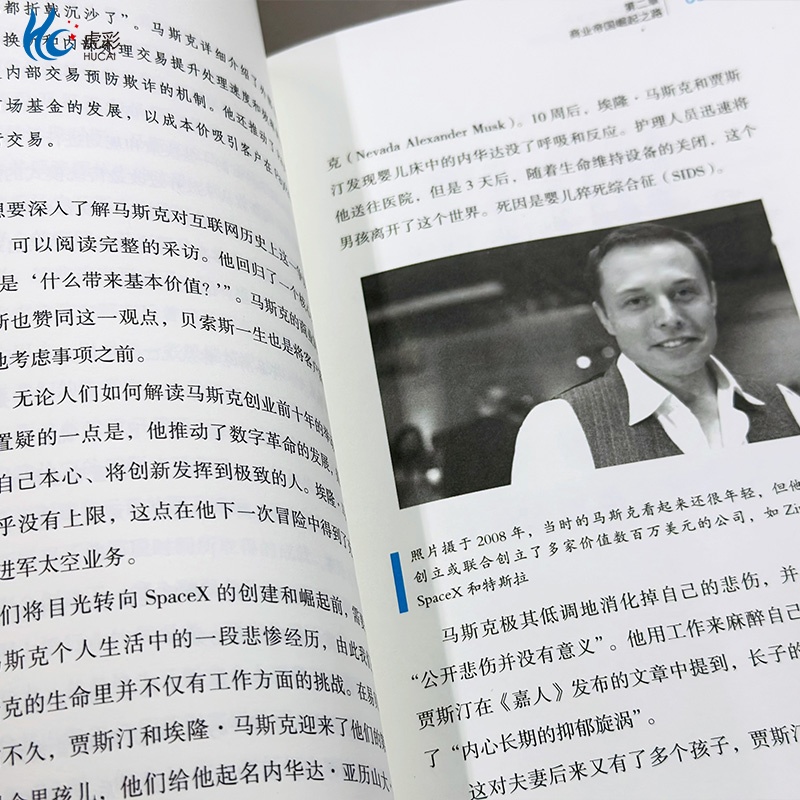 虎彩
HUCAI
都折戟沉沙了”。马斯克详细介绍了
理交易提升处理速度和
内部交易预防欺诈的机制。他还推动了
场基金的发展，以成本价吸引客户在
交易。
想要深入了解马斯克对互联网历史上这一
可以阅读完整的采访。他回归了一个
是‘什么带来基本价值？’”。马斯克的
斯也赞同这一观点，贝索斯一生也是将客户
他考虑事项之前。
无论人们如何解读马斯克创业前十年的
置疑的一点是，他推动了数字革命的发展，
自己本心、将创新发挥到极致的人。埃隆·
乎没有上限，这点在他下一次冒险中得到了
进军太空业务。
们将目光转向 SpaceX 的创建和崛起前，需
马斯克个人生活中的一段悲惨经历，由此我
克的生命里并不仅有工作方面的挑战。在易
不久，贾斯汀和埃隆·马斯克迎来了他们的
个男孩儿，他们给他起名内华达·亚历山大
第二章
商业帝国崛起之路
克（Nevada Alexander Musk）。10 周后，埃隆·马斯克和贾斯
汀发现婴儿床中的内华达没了呼吸和反应。护理人员迅速将
他送往医院，但是 3 天后，随着生命维持设备的关闭，这个
男孩离开了这个世界。死因是婴儿猝死综合征（SIDS）。
照片摄于 2008 年，当时的马斯克看起来还很年轻，但他
创立或联合创立了多家价值数百万美元的公司，如 Zi
SpaceX 和特斯拉
马斯克极其低调地消化掉自己的悲伤，并
“公开悲伤并没有意义”。他用工作来麻醉自己
贾斯汀在《嘉人》发布的文章中提到，长子的
了“内心长期的抑郁旋涡”。
这对夫妻后来又有了多个孩子，贾斯汀